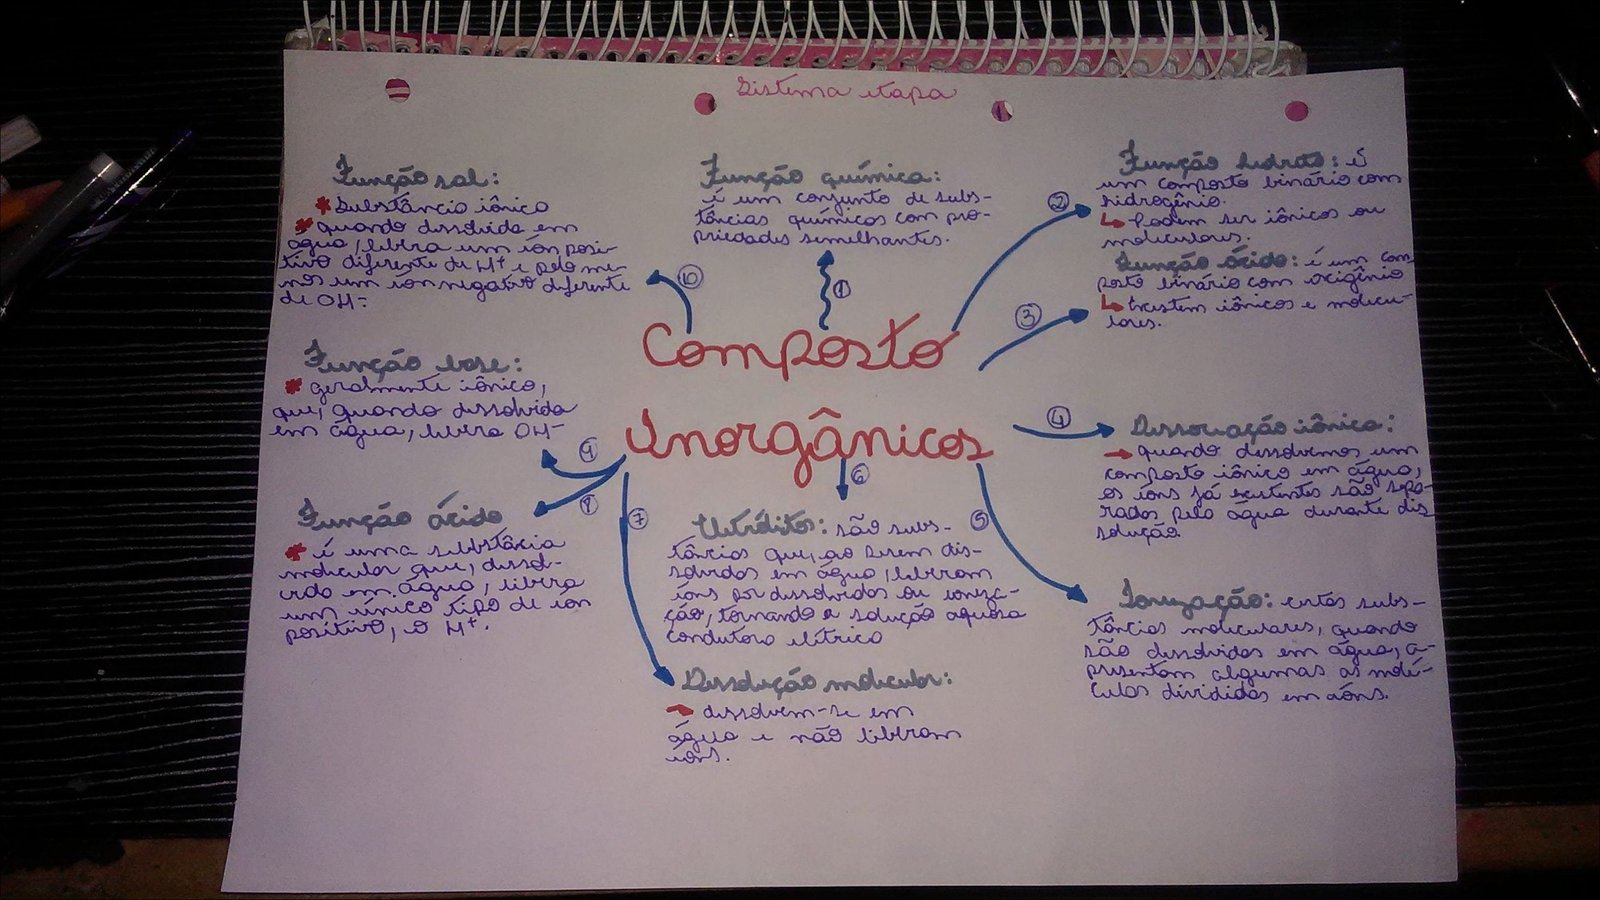 Sistema etapa
Função sal:
* Substância iônica
* quando dissolvida em
água, libera um íon posi-
tivo diferente de H+ e pelo me-
nos um íon negativo diferente
de OH-
Função química:
é um conjunto de subs-
tâncias químicas com pro-
priedades semelhantes.
Função hidreto: é
um composto binário com
hidrogênio.
↳ Podem ser iônicos ou
moleculares.
Função óxido: é um com
posto binário com oxigênio
↳ Existem iônicos e molecu-
lares.
10
1
2
3
Composto
Inorgânicos
Função base:
* geralmente iônico,
que, quando dissolvida
em água, libera OH-
9
8
7
6
5
4
Dissociação iônica:
→ quando dissolvemos um
composto iônico em água,
os íons já existentes são sepa-
rados pela água durante dis
solução.
Função ácido
* é uma substância
molecular que, dissol-
vida em água, libera
um único tipo de íon
positivo, o H+.
são subs-
tâncias que, ao serem dis-
solvidas em água, liberam
íons por dissolvidas ou ioniza-
ção, tornando a solução aquosa
condutora elétrica
Ionização: certas subs-
tâncias moleculares, quando
são dissolvidas em água, a-
presentam algumas as molé-
culas divididas em íons.
Dissolução molecular:
→ dissolvem-se em
água e não liberam
íons.